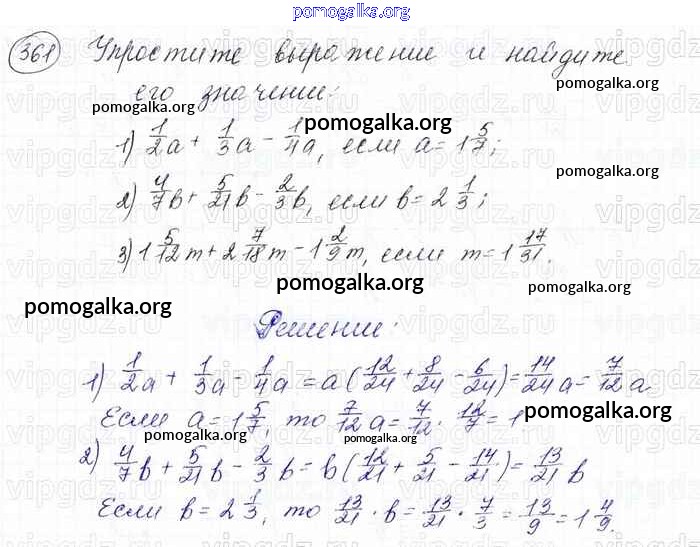 pomogalka.org
361 Упростите выражение и найдите
его значение:
pomogalka.org
pomogalka.org
pomogalka.org
1) 1/2a + 1/3a - 1/4a, если a = 1 5/7;
2) 4/7b + 5/21b - 2/3b, если b = 2 1/3;
pomogalka.org
3) 1 5/12m + 2 7/18m - 1 2/9m, если m = 1 17/31.
pomogalka.org
pomogalka.org
pomogalka.org
Решение:
1) 1/2a + 1/3a - 1/4a = a(12/24 + 8/24 - 6/24) = 14/24a = 7/12a.
Если a = 1 5/7, то 7/12a = 7/12 · 12/7 = 1
pomogalka.org
pomogalka.org
pomogalka.org
2) 4/7b + 5/21b - 2/3b = b(12/21 + 5/21 - 14/21) = 13/21 b
Если b = 2 1/3, то 13/21 · b = 13/21 · 7/3 = 13/9 = 1 4/9.